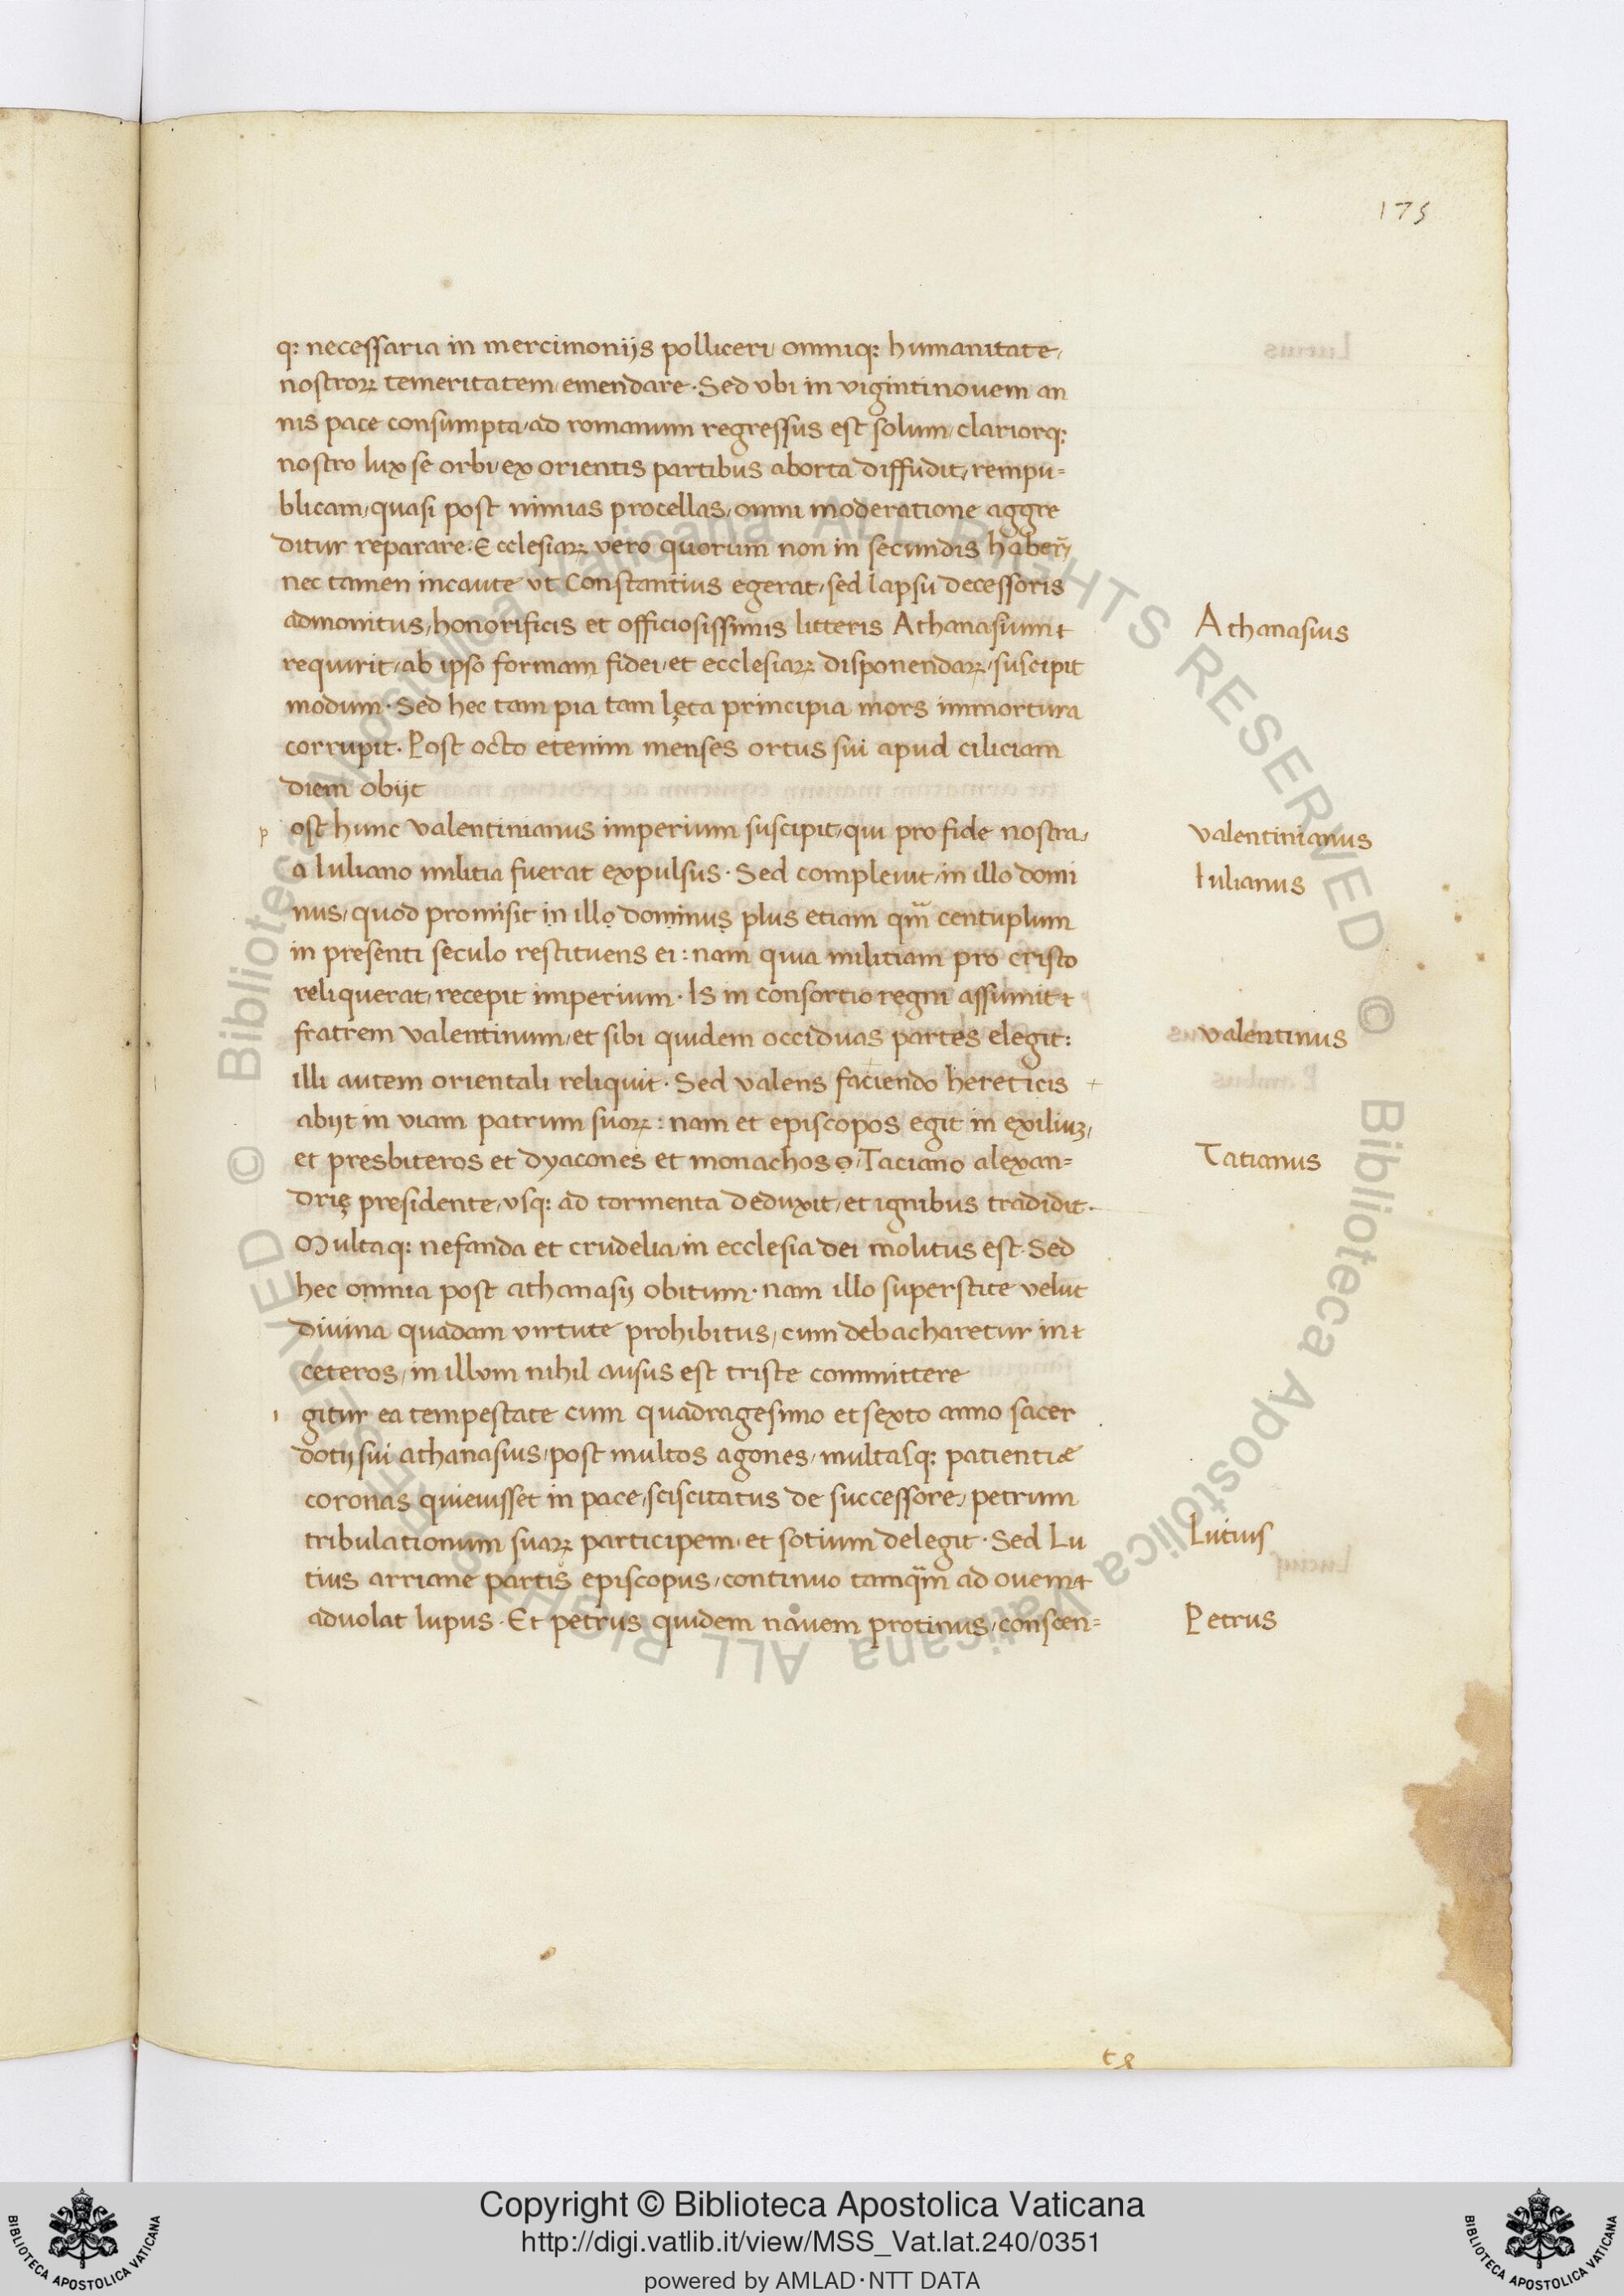 175
q: necessaria in mercimonijs polliceri, omniq: humanitate,
nostroꝝ temeritatem, emendare. Sed vbi in vigintinouem an
nis pace consumpta, ad romanum regressus est solum, clariorq:
nostro lux se orbi, ex orientis partibus aborta diffudit, rempu=
blicam, quasi post nimias procellas, omni moderatione aggre
ditur reparare. Ecclesiaꝝ vero quorum non in secundis haber̃,
nec tamen incaute vt Constantius egerat, sed lapsu decessoris
admonitus, honorificis et officiosissimis litteris Athanasium
requirit, ab ipso formam fidei, et ecclesiaꝝ disponendaꝝ, suscipit
modum. Sed hec tam pia tam lęta principia mors immortura
corrupit. Post octo etenim menses ortus sui apud ciliciam
diem obijt
p ost hunc valentinianus imperium suscipit, qui pro fide nostra,
a Iuliano militia fuerat expulsus. Sed compleuit, in illo domi
nus, quod promisit ịn illọ doṃinuṣ plus etiam qm̃ centuplum
in presenti seculo restituens ei: nam quia militiam pro cristo
reliquerat, recepit imperium. Is in consortio regni assumit
fratrem valentinum, et sibi quidem occiduas partes elegit:
illi autem orientali reliquit. Sed valens faciendo hereticis +
abijt in viam patrum suoꝝ: nam et episcopos egit in exiliuʒ,
et presbiteros et dyacones et monachos ọ, Taciano alexan=
drię presidente, vsq: ad tormenta deduxit, et ignibus tradidit.
Multaq: nefanda et crudelia, in ecclesia dei molitus est. Sed
hec omnia post athanasij obitum. nam illo superstite velut
diuina quadam virtute prohibitus, cum debacharetur in
ceteros, in illum nihil ausus est triste committere
i gitur ea tempestate cum quadragesimo et sexto anno sacer
dotij sui athanasius, post multos agones, multasq: patientiæ
coronas quieuisset in pace, sciscitatus de successore, petrum
tribulationum suaꝝ participem, et sotium delegit. Sed Lu
tius arriane partis episcopus, continuo tamq̃m ad ouem
aduolat lupus. Et petrus quidem nauem protinus, conscen=
Athanasius
valentinianus
Iulianus
valentinus
Tatianus
Lutius
Petrus
© Biblioteca Apostolica Vaticana ALL RIGHTS RESERVED © Biblioteca Apostolica Vaticana ALL RIGHTS RESERVED
Copyright © Biblioteca Apostolica Vaticana
http://digi.vatlib.it/view/MSS_Vat.lat.240/0351
powered by AMLAD·NTT DATA
BIBLIOTECA APOSTOLICA VATICANA
BIBLIOTECA APOSTOLICA VATICANA